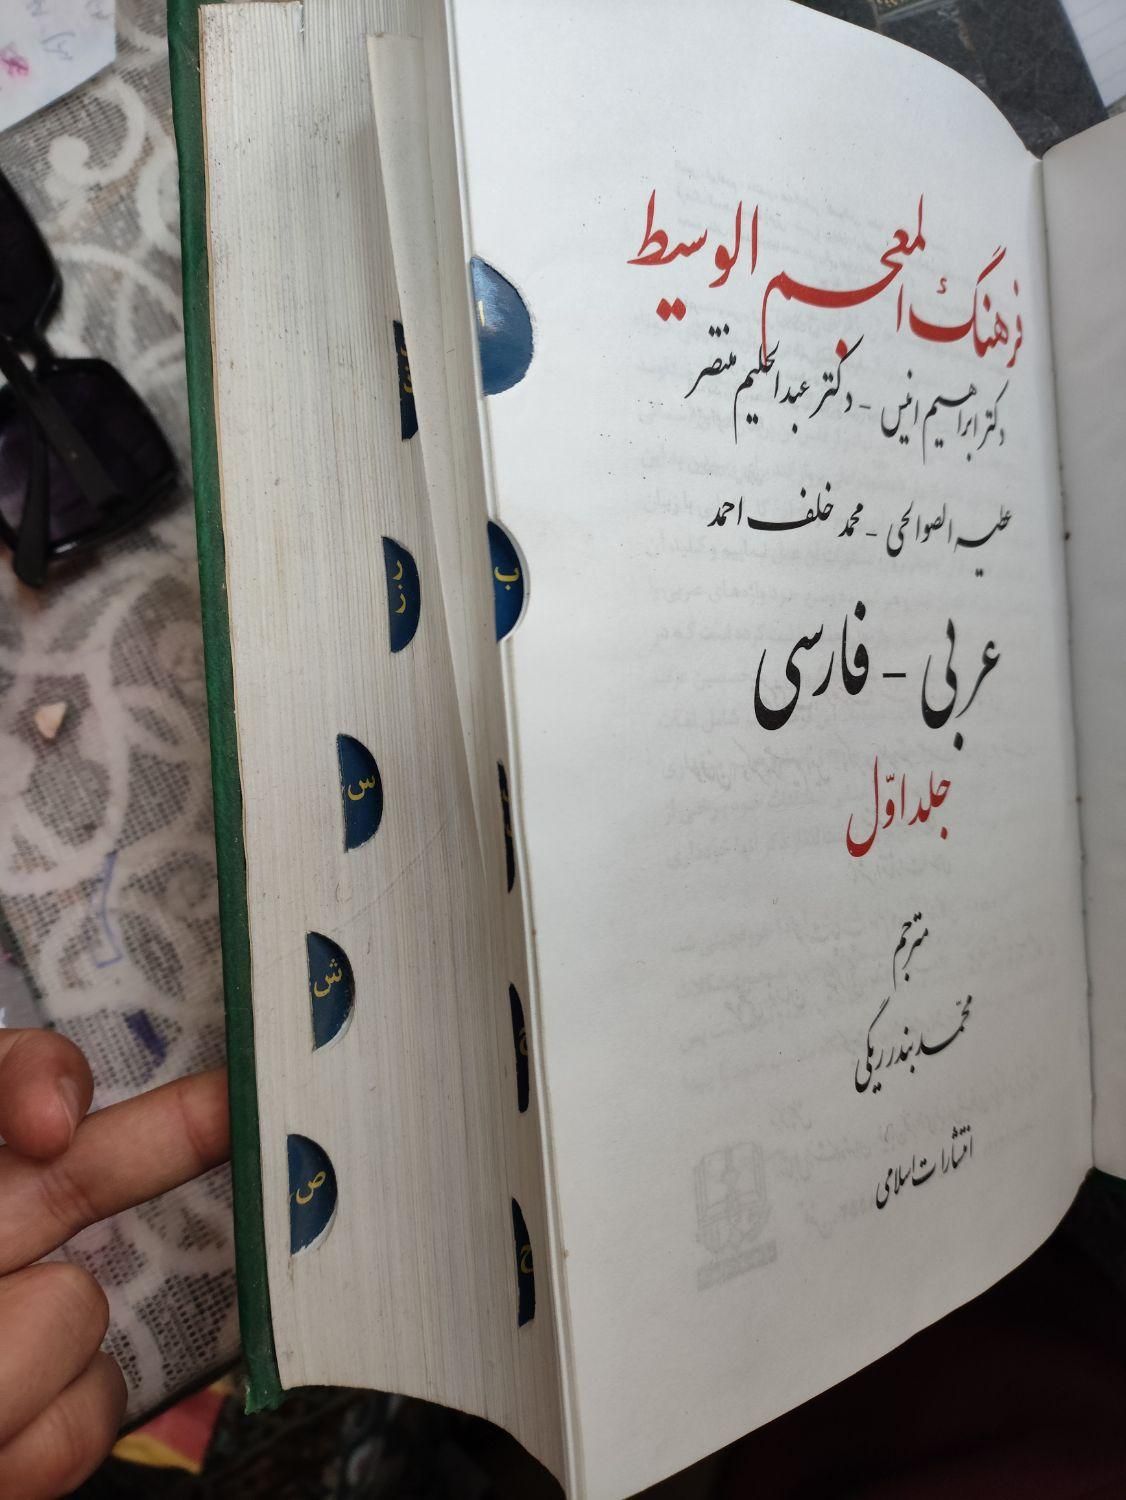 فرهنگ المعجم الوسیط
دکتر ابراهیم انیس - دکتر عبدالحلیم منتصر
عطیه الصوالحی - محمد خلف احمد
عربی - فارسی
جلد اوّل
مترجم
محمّد بندر ریگی
انتشارات اسلامی
ا
ب
ج
ح
ر
ز
س
ش
ص